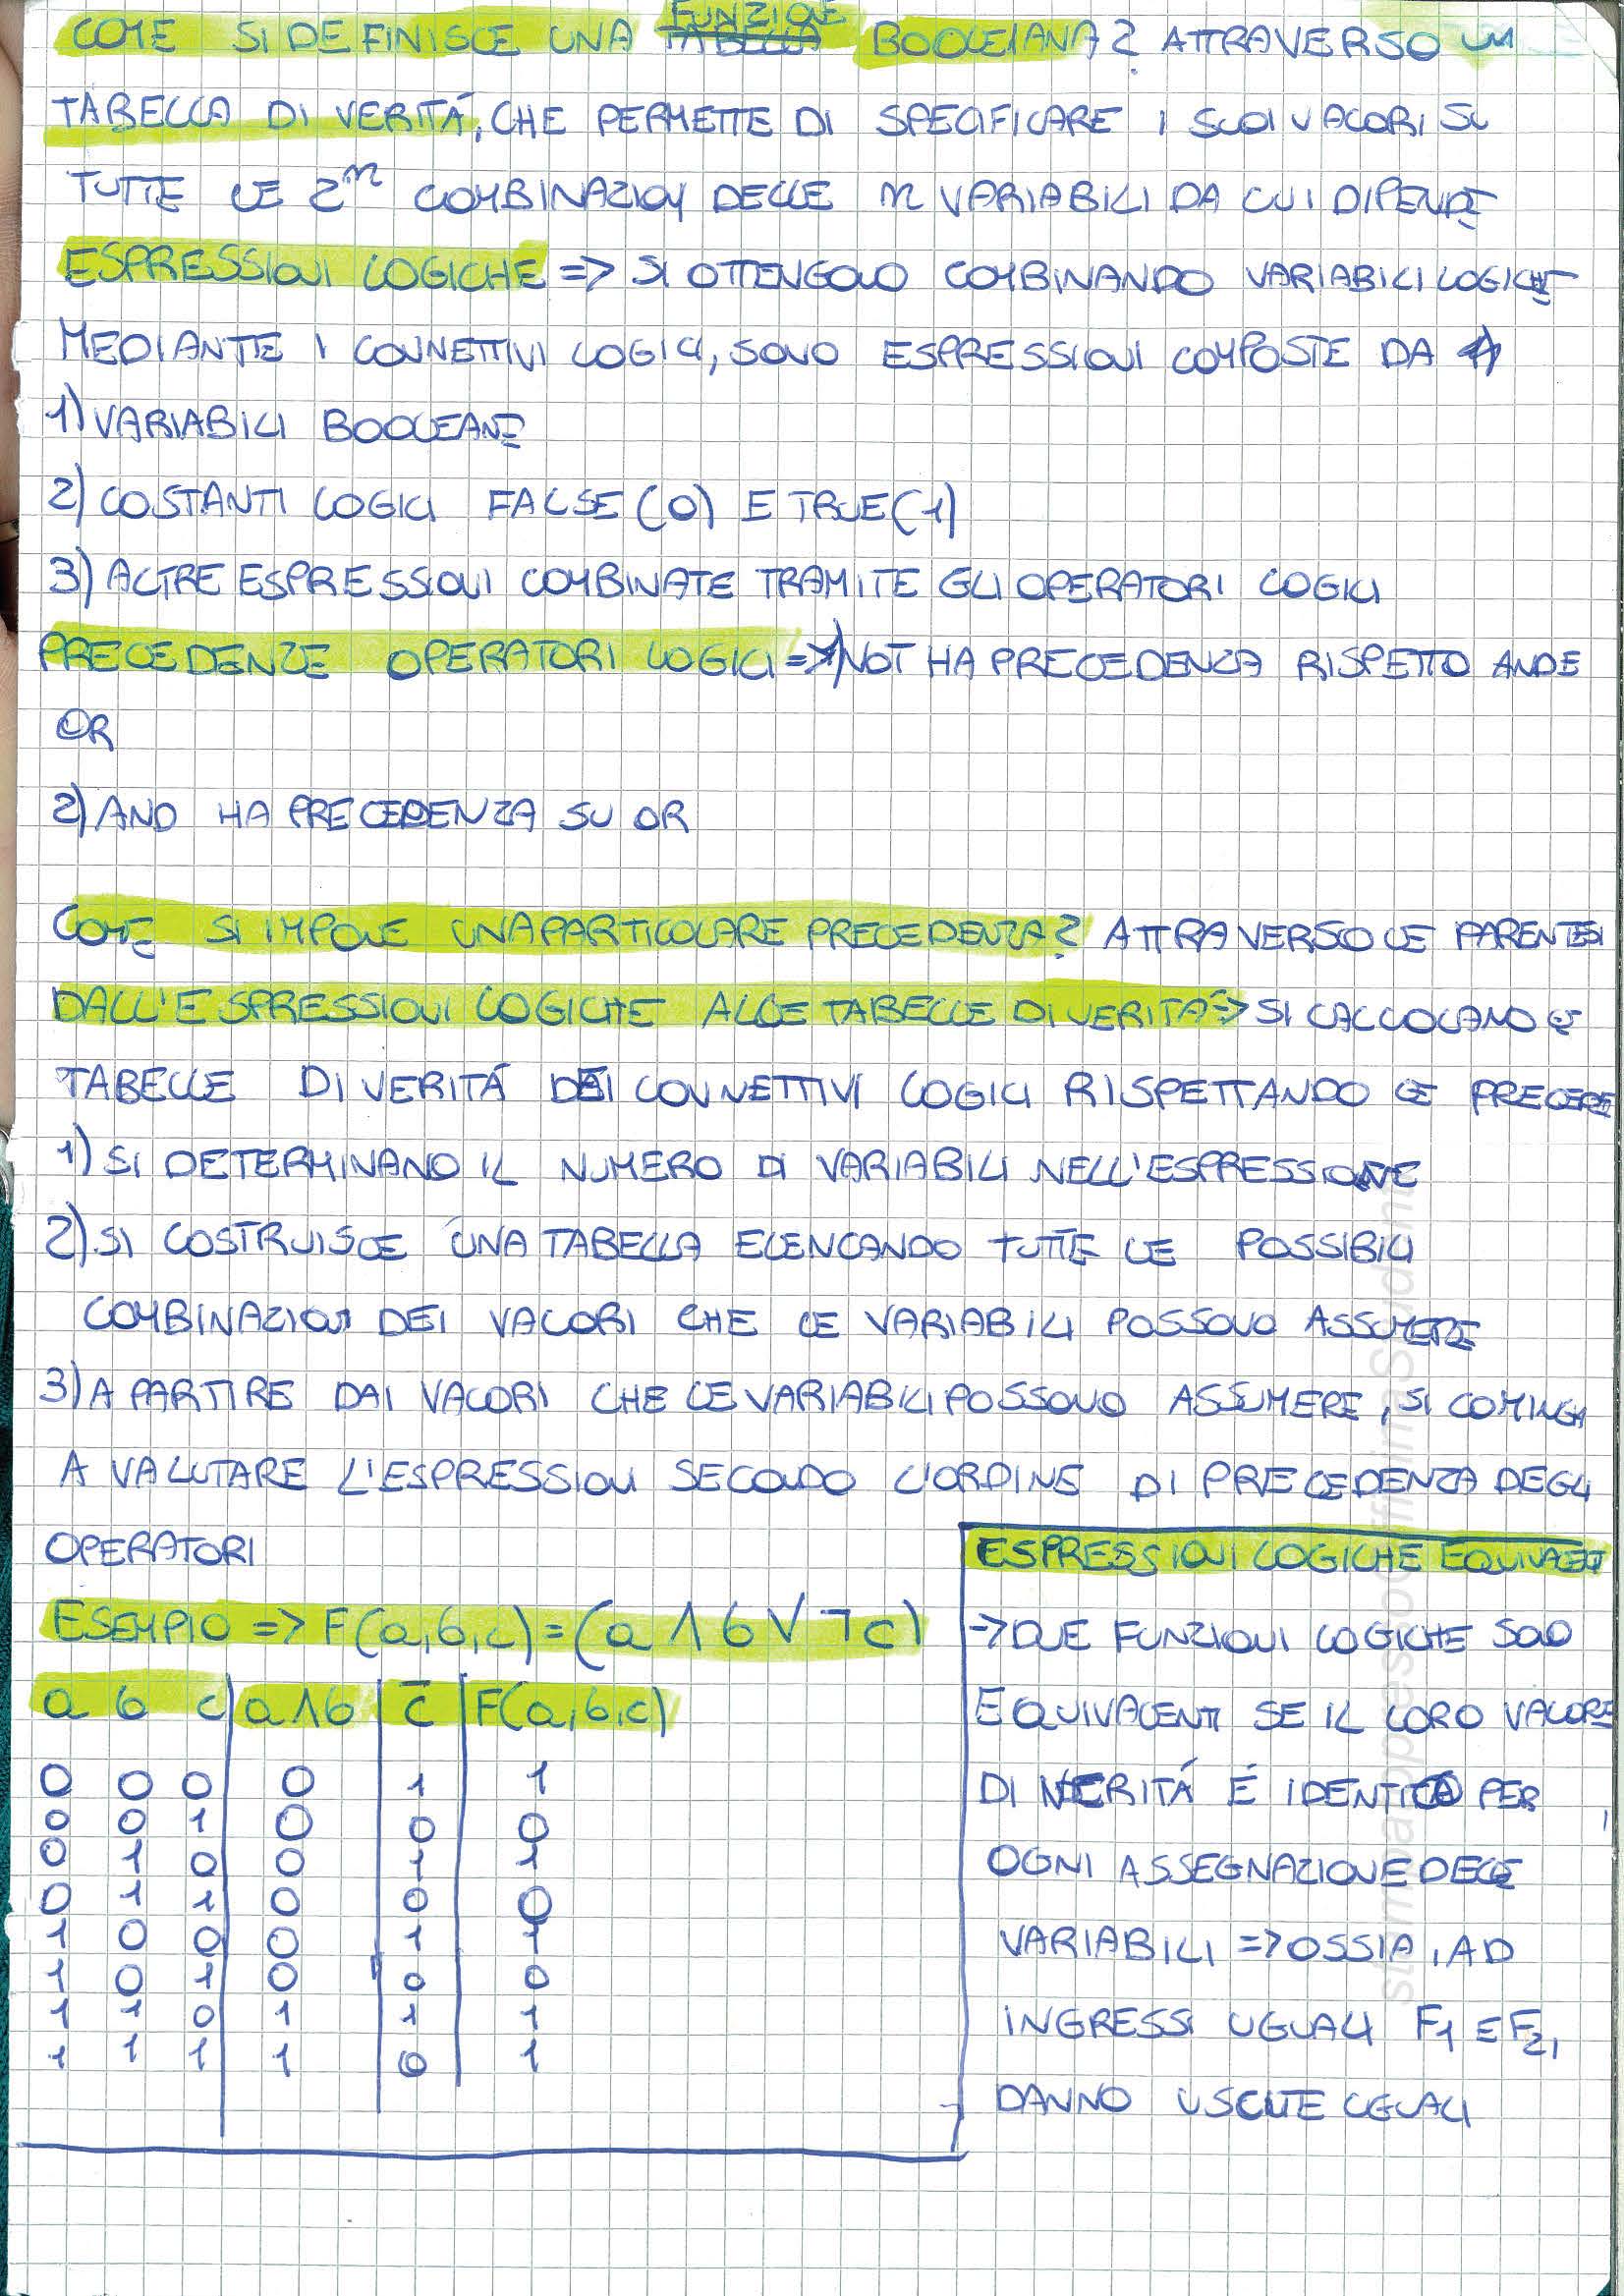 COME SI DEFINISCE UNA FUNZIONE BOOLEIANA? ATTRAVERSO UN
TABELLA DI VERITÁ, CHE PERMETTE DI SPECIFICARE I SUOI VALORI SU
TUTTE LE 2^n COMBINAZIONI DELLE n VARIABILI DA CUI DIPENDE
ESPRESSIONI LOGICHE => SI OTTENGONO COMBINANDO VARIABILI LOGICHE
MEDIANTE I CONNETTIVI LOGICI, SONO ESPRESSIONI COMPOSTE DA
1) VARIABILI BOOLEANE
2) COSTANTI LOGICI FALSE (0) E TRUE (1)
3) ALTRE ESPRESSIONI COMBINATE TRAMITE GLI OPERATORI LOGICI
PRECEDENZE OPERATORI LOGICI => 1) NOT HA PRECEDENZA RISPETTO AND E
OR
2) AND HA PRECEDENZA SU OR
COME SI IMPONE UNA PARTICOLARE PRECEDENZA? ATTRAVERSO LE PARENTESI
DALL'ESPRESSIONI LOGICHE ALLE TABELLE DI VERITÁ => SI CALCOLANO LE
TABELLE DI VERITÁ DEI CONNETTIVI LOGICI RISPETTANDO LE PRECEDE
1) SI DETERMINANO IL NUMERO DI VARIABILI NELL'ESPRESSIONE
2) SI COSTRUISCE UNA TABELLA ELENCANDO TUTTE LE POSSIBILI
COMBINAZIONI DEI VALORI CHE LE VARIABILI POSSONO ASSUMERE
3) A PARTIRE DAI VALORI CHE LE VARIABILI POSSONO ASSUMERE, SI COMINCIA
A VALUTARE L'ESPRESSIONI SECONDO L'ORDINE DI PRECEDENZA DEGLI
OPERATORI
ESEMPIO => F(a,b,c) = (a ∧ b ∨ ¬ c)
a b c a∧b c̄ F(a,b,c)
0 0 0 0 1 1
0 0 1 0 0 0
0 1 0 0 1 1
0 1 1 0 0 0
1 0 0 0 1 1
1 0 1 0 0 0
1 1 0 1 1 1
1 1 1 1 0 1
ESPRESSIONI LOGICHE EQUIVALENTI
-> DUE FUNZIONI LOGICHE SONO
EQUIVALENTI SE IL LORO VALORE
DI VERITÁ É IDENTICO PER
OGNI ASSEGNAZIONE DELLE
VARIABILI => OSSIA, AD
INGRESSI UGUALI F1 E F2,
DANNO USCITE UGUALI